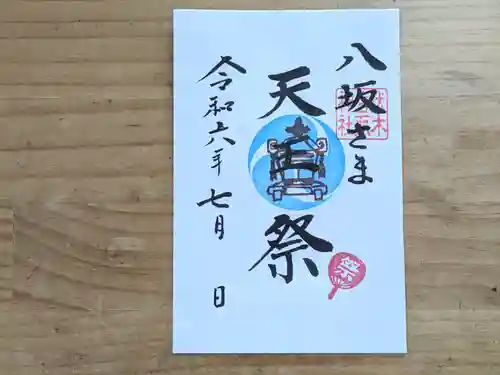 八坂さま
天王祭
祭
令和六年七月 日